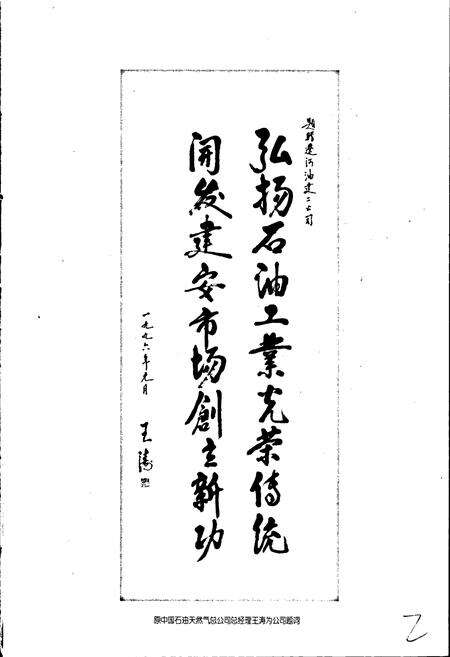 题赠辽河油建二公司
弘扬石油工業光荣傳统
開发建安市场創立新功
一九九六年元月
王涛
原中国石油天然气总公司总经理王涛为公司题词
乙